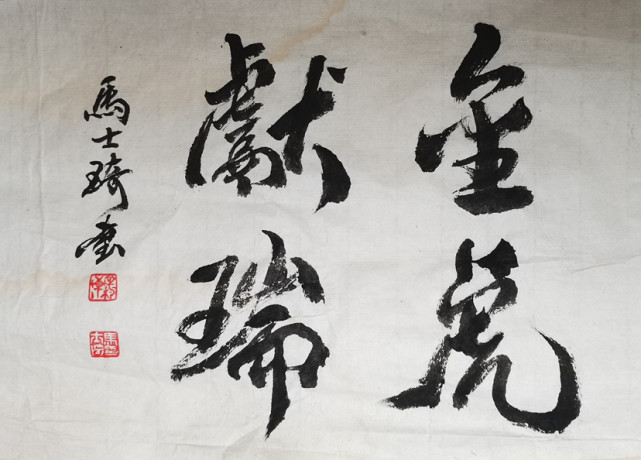 金虎
獻瑞
馬士琦書